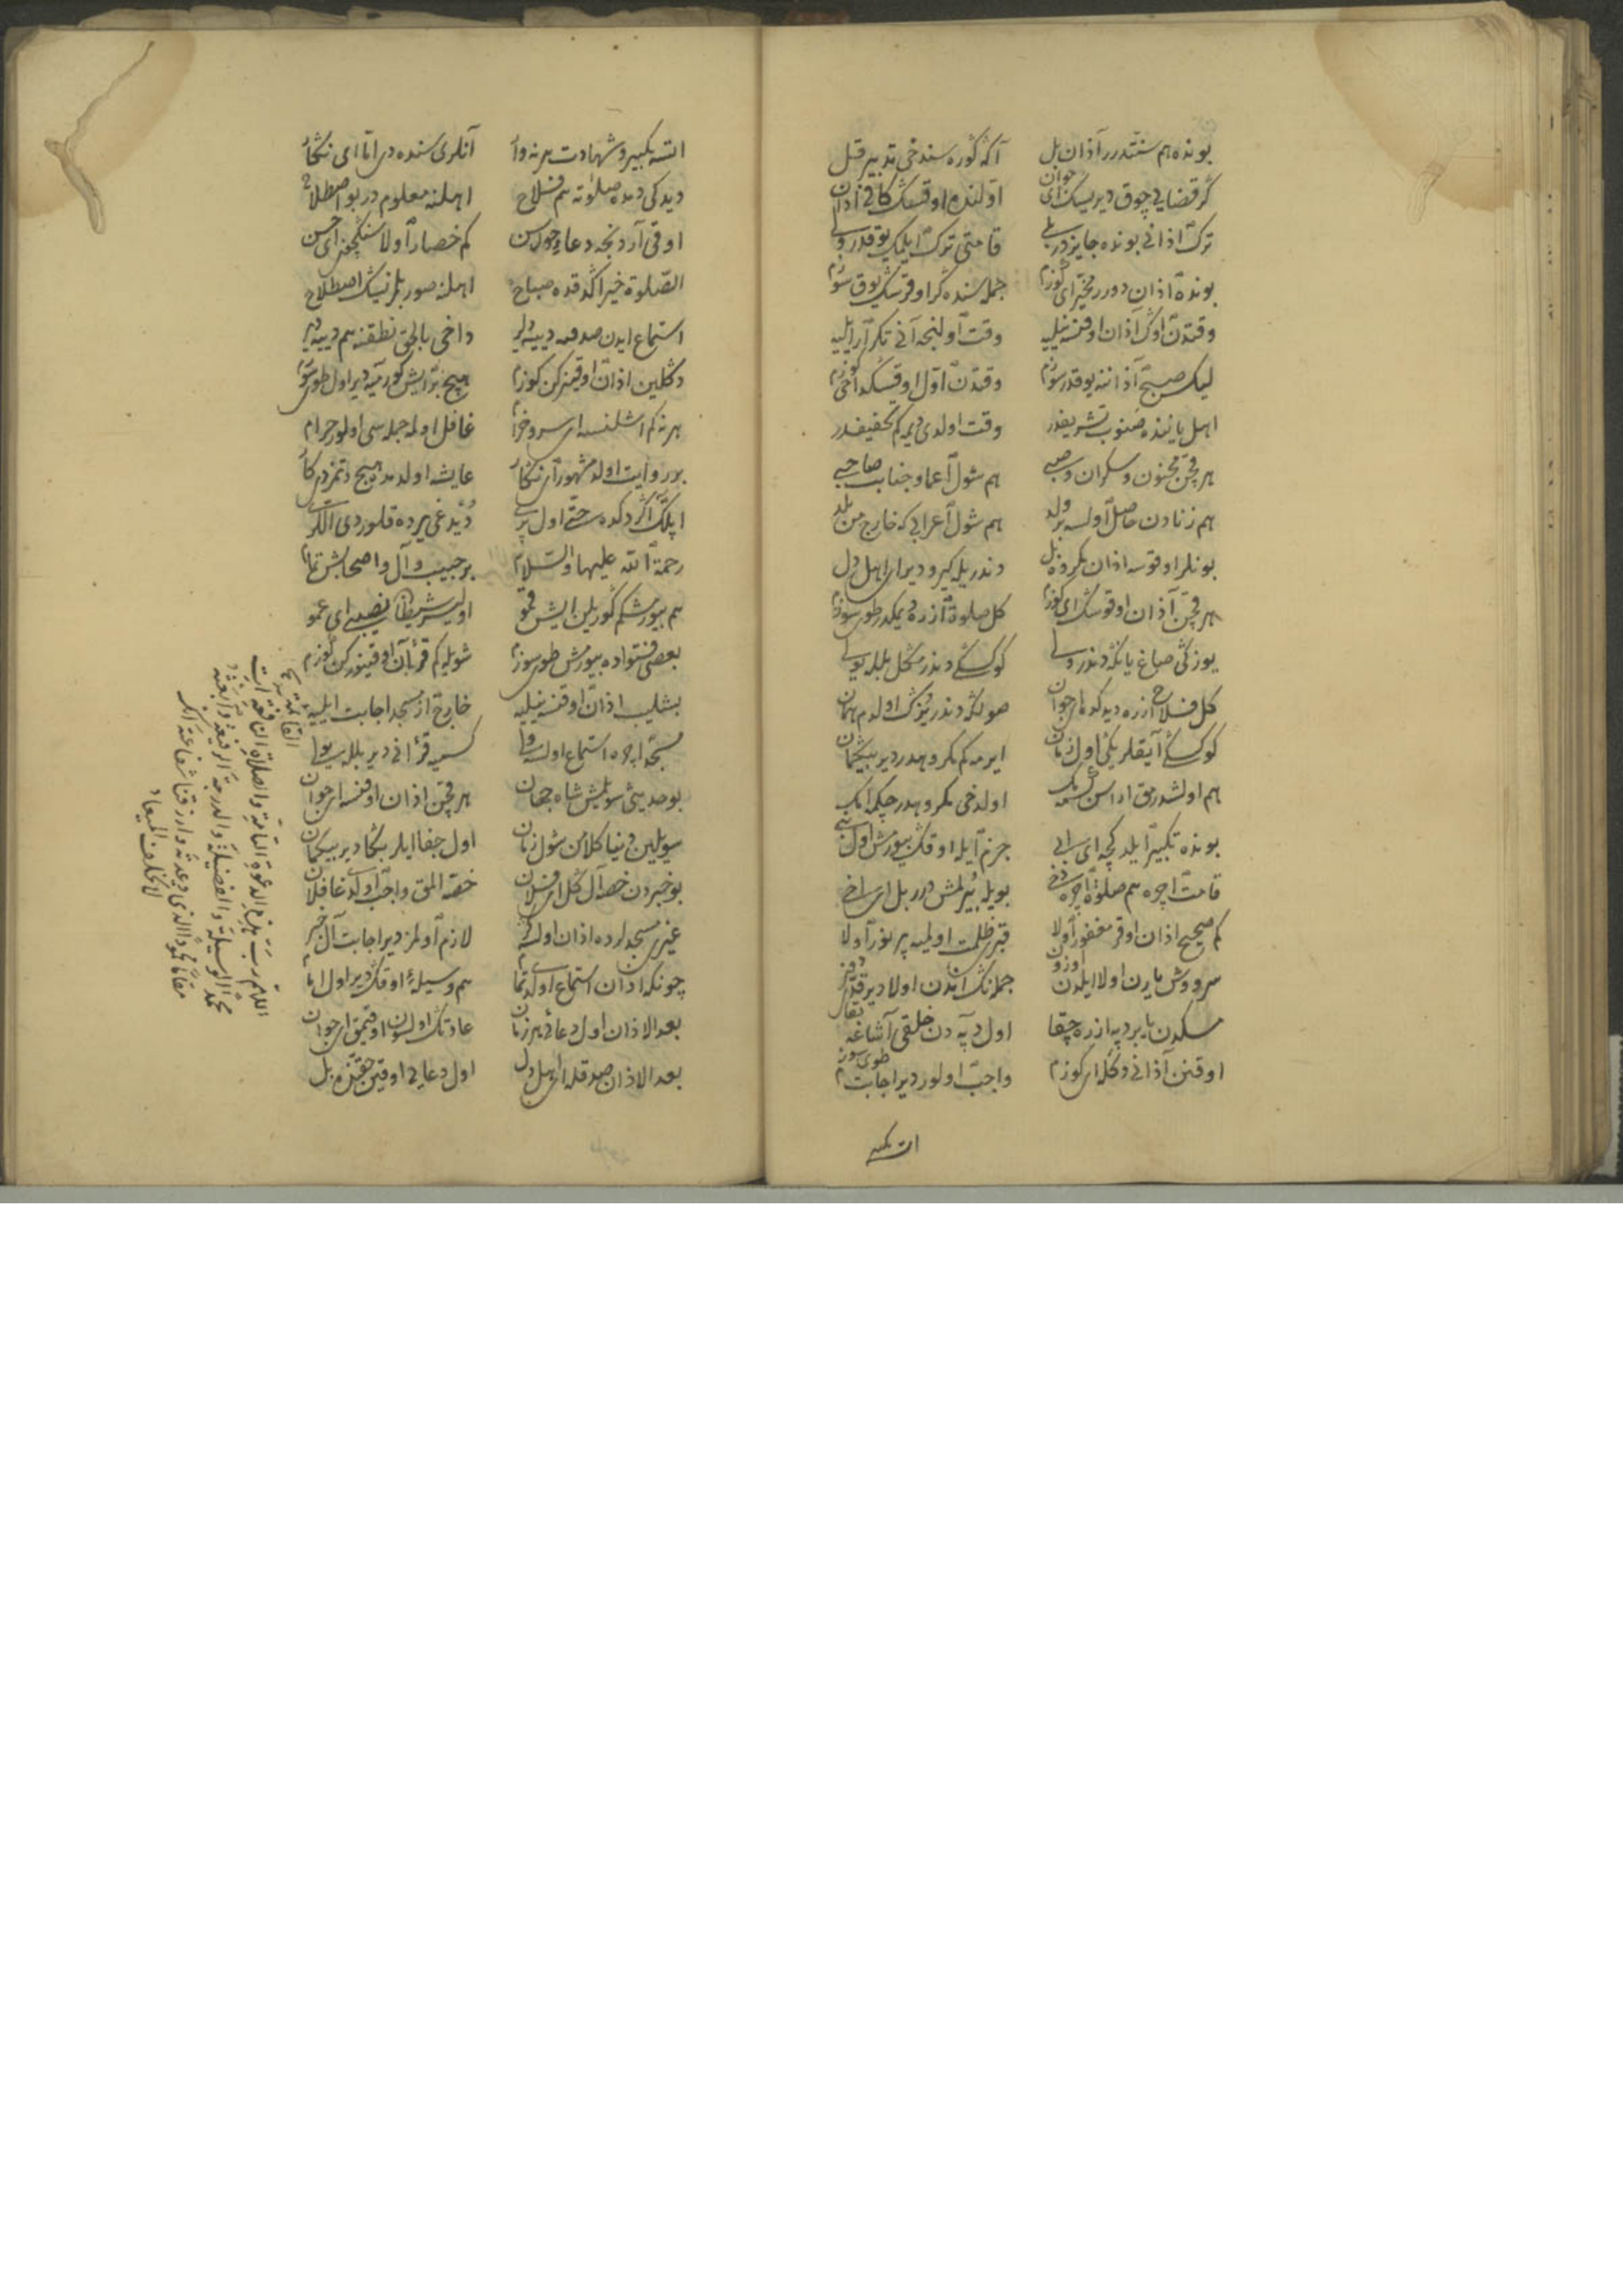 بونده هم سنتدرر آذان بل آكه كوره سندخی تدبیر قیل
كر قضایی چوق دیرسك ای جوان اولنده اوقسك كافی اذان
ترك اذانی بونده جایزدر بلی قامتی ترك ایلمك یوقدر ولی
بونده اذان دورر مخیر ای كوزم جمله سنده كر اوقرسك یوق سوزم
وقتدن اوك آذان اوقنسه نیلیه وقت اولنجه آنی تكرار ایلیه
لیك صبح آذاننه یوقدر سوزم وقتدن اول اوقسكه اخی كوزم
اهل یاننده تشریفدر وقت اولدی دیه كم تخفیفدر
هر قچن مجنون و سكران و صبی هم شول اعما و جنابت صاحبی
هم زنادن حاصل اولسه بر ولد هم شول اعرابی كه خارج من بلد
بونلر اوقوسه اذان مكروه بل دندر یله كیرو دیر ای اهل دل
هر قچن آذان اوقوسك ای كوزم كل صلوة ازره دیمكدر طوی سوزم
یوزكی صاغ یانكه دندر ولی كوكسكی دندرمكل بله یولی
كل فلاح ازره دیدكده ای جوان صولكه دندر یوزك اولدم همان
كوكسكی آیقلریكی اول زمان ایرمه كم مكروهدر دیر بیكمان
هم اولشدرمق اداسن اولدخی مكروهدر
بونده تكبیر ایله كچه ای جزم ایله اوقك بیورمش اول نبی
قامت اچره هم صلوة اچره دخی بویله بیرلمش درر بل ای اخی
كم صحیح اذان اوقر مغفور اولا قبری ظلمت اولمیه پر نور اولا
سرو وش یارن اولا ایلدن اوزون جمله نك اندن اولا دیر
مسكدن یا بر دپه ازره چقا اول دپه دن خلقی آشاغه بقار
اوقنن آذانی دكله ای كوزم واجب اولور دیر اجابت طوی سوزم
ات تكبیر
اتسه تكبیر و شهادت هر نه وار آنلری سنده دی اتا ای نكار
دیدكی دمده صلوته هم فلاح اهلنه معلوم در بو اصطلاح
اوقی آردنجه دعا وجولسن كم خصار اولا سنكچون ای حسن
الصلوة خیر اكدقده صباح اهلنه صور بلرنیك اصطلاح
استماع ایدن صدقه دییه دلیر داخی بالحق نطقنه هم دییه دیر
دكلین اذان اوقینركن كوزم هیچ بر ایش كورمیه دیر اول طوی سوزم
هر نه كم اشلنسه ای سرو خرام غافل اوله جمله سی اولور حرام
بو روایت اولدی مشهور ای نكار عایشه اولدمده هیچ دتمزدی كار
ایلك اكردكده حتی اول پری دیدغی یرده قلوردی اللری
رحمة الله علیها والسلام بر حبیب و آل و اصحابش تمام
هم بیورمشكم كوریلن ایش قمو اولیر شیطان نصیبی ای عمو
بعضی فتواده بیورمش طوی سوزم شویله كم قرآن اوقینوركن كوزم
بشلیب اذان اوقنسه نیلیه خارج از مسجد اجابت ایلیه
مسجد اچره استماع اولسه ولی كسمیه قرآنی دیر بللر یولی
بو حدیثی سویلمش شاه جهان هر قچن اذان اوقنسه ای جوان
سویلین دنیا كلامن شول زمان اول جفا ایلر بكا دیر بیكمان
بو خبردن حصه آل كل ای فلان حصه المق واجب اولدی غافلان
غیری مسجدلرده اذان اولسه كر لازم اولمز دیر اجابت آل خبر
چونكه اذان استماع اولدی تمام هم وسیله اوقك دیر اول امام
بعد الاذان اول دعائی هر زمان عادتك اولسون اوقیمق ای جوان
بعد الاذان صدقله ای اهل دل اول دعایی اوقین حقنزه بل
اللهم رب هذه الدعوة التامة والصلاة القائمة النافعة آت
محمد الوسیلة والفضیلة والدرجة الرفیعة وابعثه
مقاما محمودا الذی وعدته وارزقنا شفاعته انك
لا تخلف المیعاد